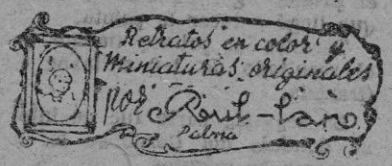 Retratos en color y
miniaturas originales
por
Palma